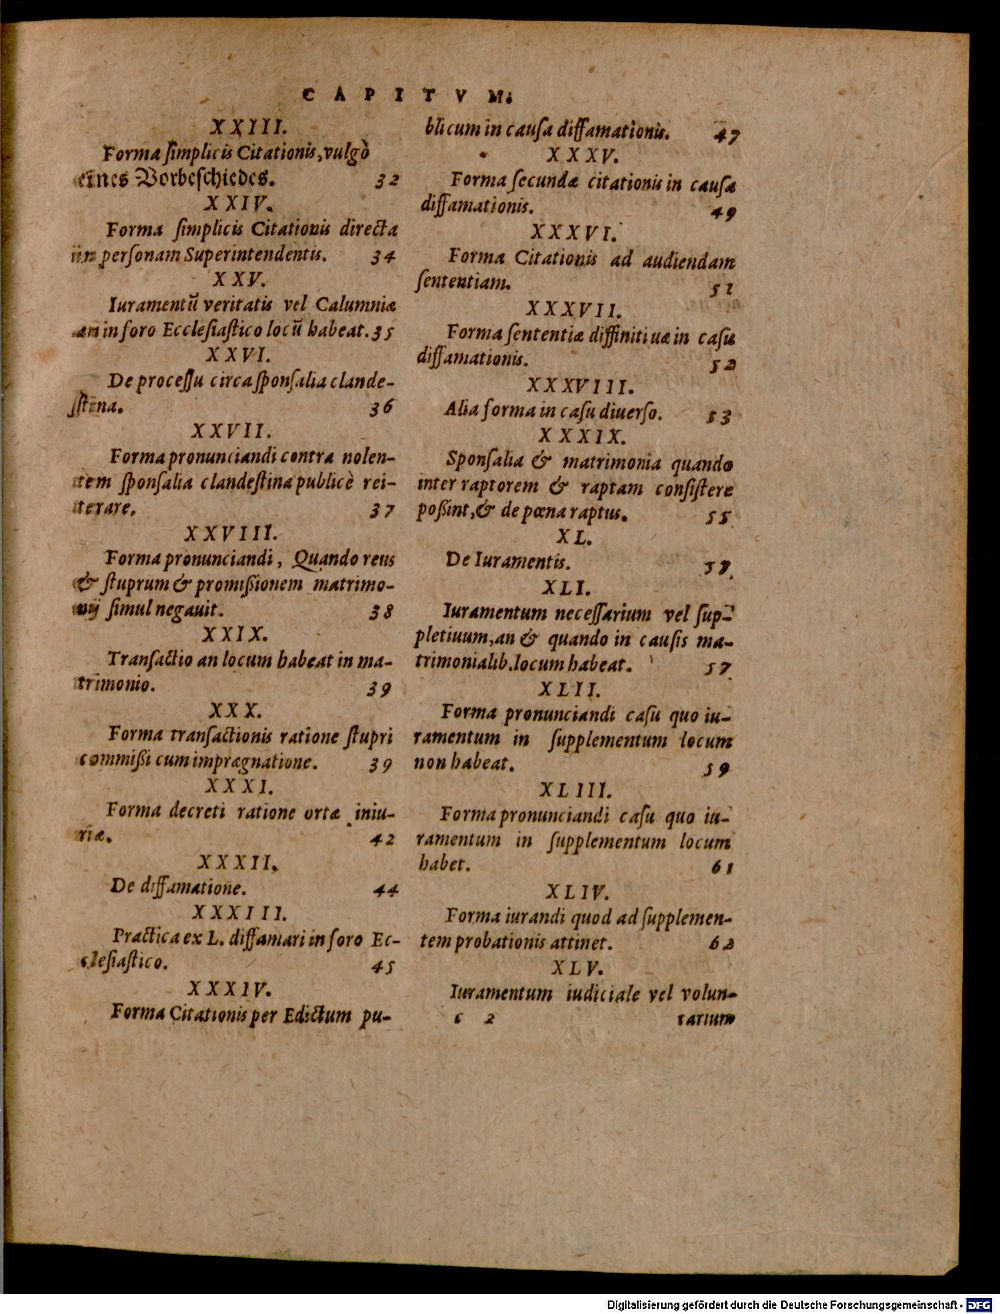 CAPITVM.
XXIII.
Forma ſimplicis Citationis, vulgò
eines Vorbeſchiedes. 32
XXIV.
Forma ſimplicis Citationis directa
in perſonam Superintendentis. 34
XXV.
Iuramentũ veritatis vel Calumniæ
an in foro Eccleſiaſtico locũ habeat. 35
XXVI.
De proceſſu circa ſponſalia clande-
ſtina. 36
XXVII.
Forma pronunciandi contra nolen-
tem ſponſalia clandeſtina publicè rei-
terare. 37
XXVIII.
Forma pronunciandi, Quando reus
& ſtuprum & promiſſionem matrimo-
nij ſimul negauit. 38
XXIX.
Tranſactio an locum habeat in ma-
trimonio. 39
XXX.
Forma tranſactionis ratione ſtupri
commiſſi cum imprægnatione. 39
XXXI.
Forma decreti ratione ortæ iniu-
riæ. 42
XXXII.
De diffamatione. 44
XXXIII.
Practica ex L. diffamari in foro Ec-
cleſiaſtico. 45
XXXIV.
Forma Citationis per Edictum pu-
blicum in cauſa diffamationis. 47
XXXV.
Forma ſecundæ citationis in cauſa
diffamationis. 49
XXXVI.
Forma Citationis ad audiendam
ſententiam. 51
XXXVII.
Forma ſententiæ diffinitiuæ in caſu
diffamationis. 52
XXXVIII.
Alia forma in caſu diuerſo. 53
XXXIX.
Sponſalia & matrimonia quando
inter raptorem & raptam conſiſtere
poſſint, & de pœna raptus. 55
XL.
De Iuramentis. 57.
XLI.
Iuramentum neceſſarium vel ſup-
pletiuum, an & quando in cauſis ma-
trimonialib. locum habeat. 57
XLII.
Forma pronunciandi caſu quo iu-
ramentum in ſupplementum locum
non habeat. 59
XLIII.
Forma pronunciandi caſu quo iu-
ramentum in ſupplementum locum
habet. 61
XLIV.
Forma iurandi quod ad ſupplemen-
tem probationis attinet. 62
XLV.
Iuramentum iudiciale vel volun-
c 2 tarium
Digitalisierung gefördert durch die Deutsche Forschungsgemeinschaft - DFG